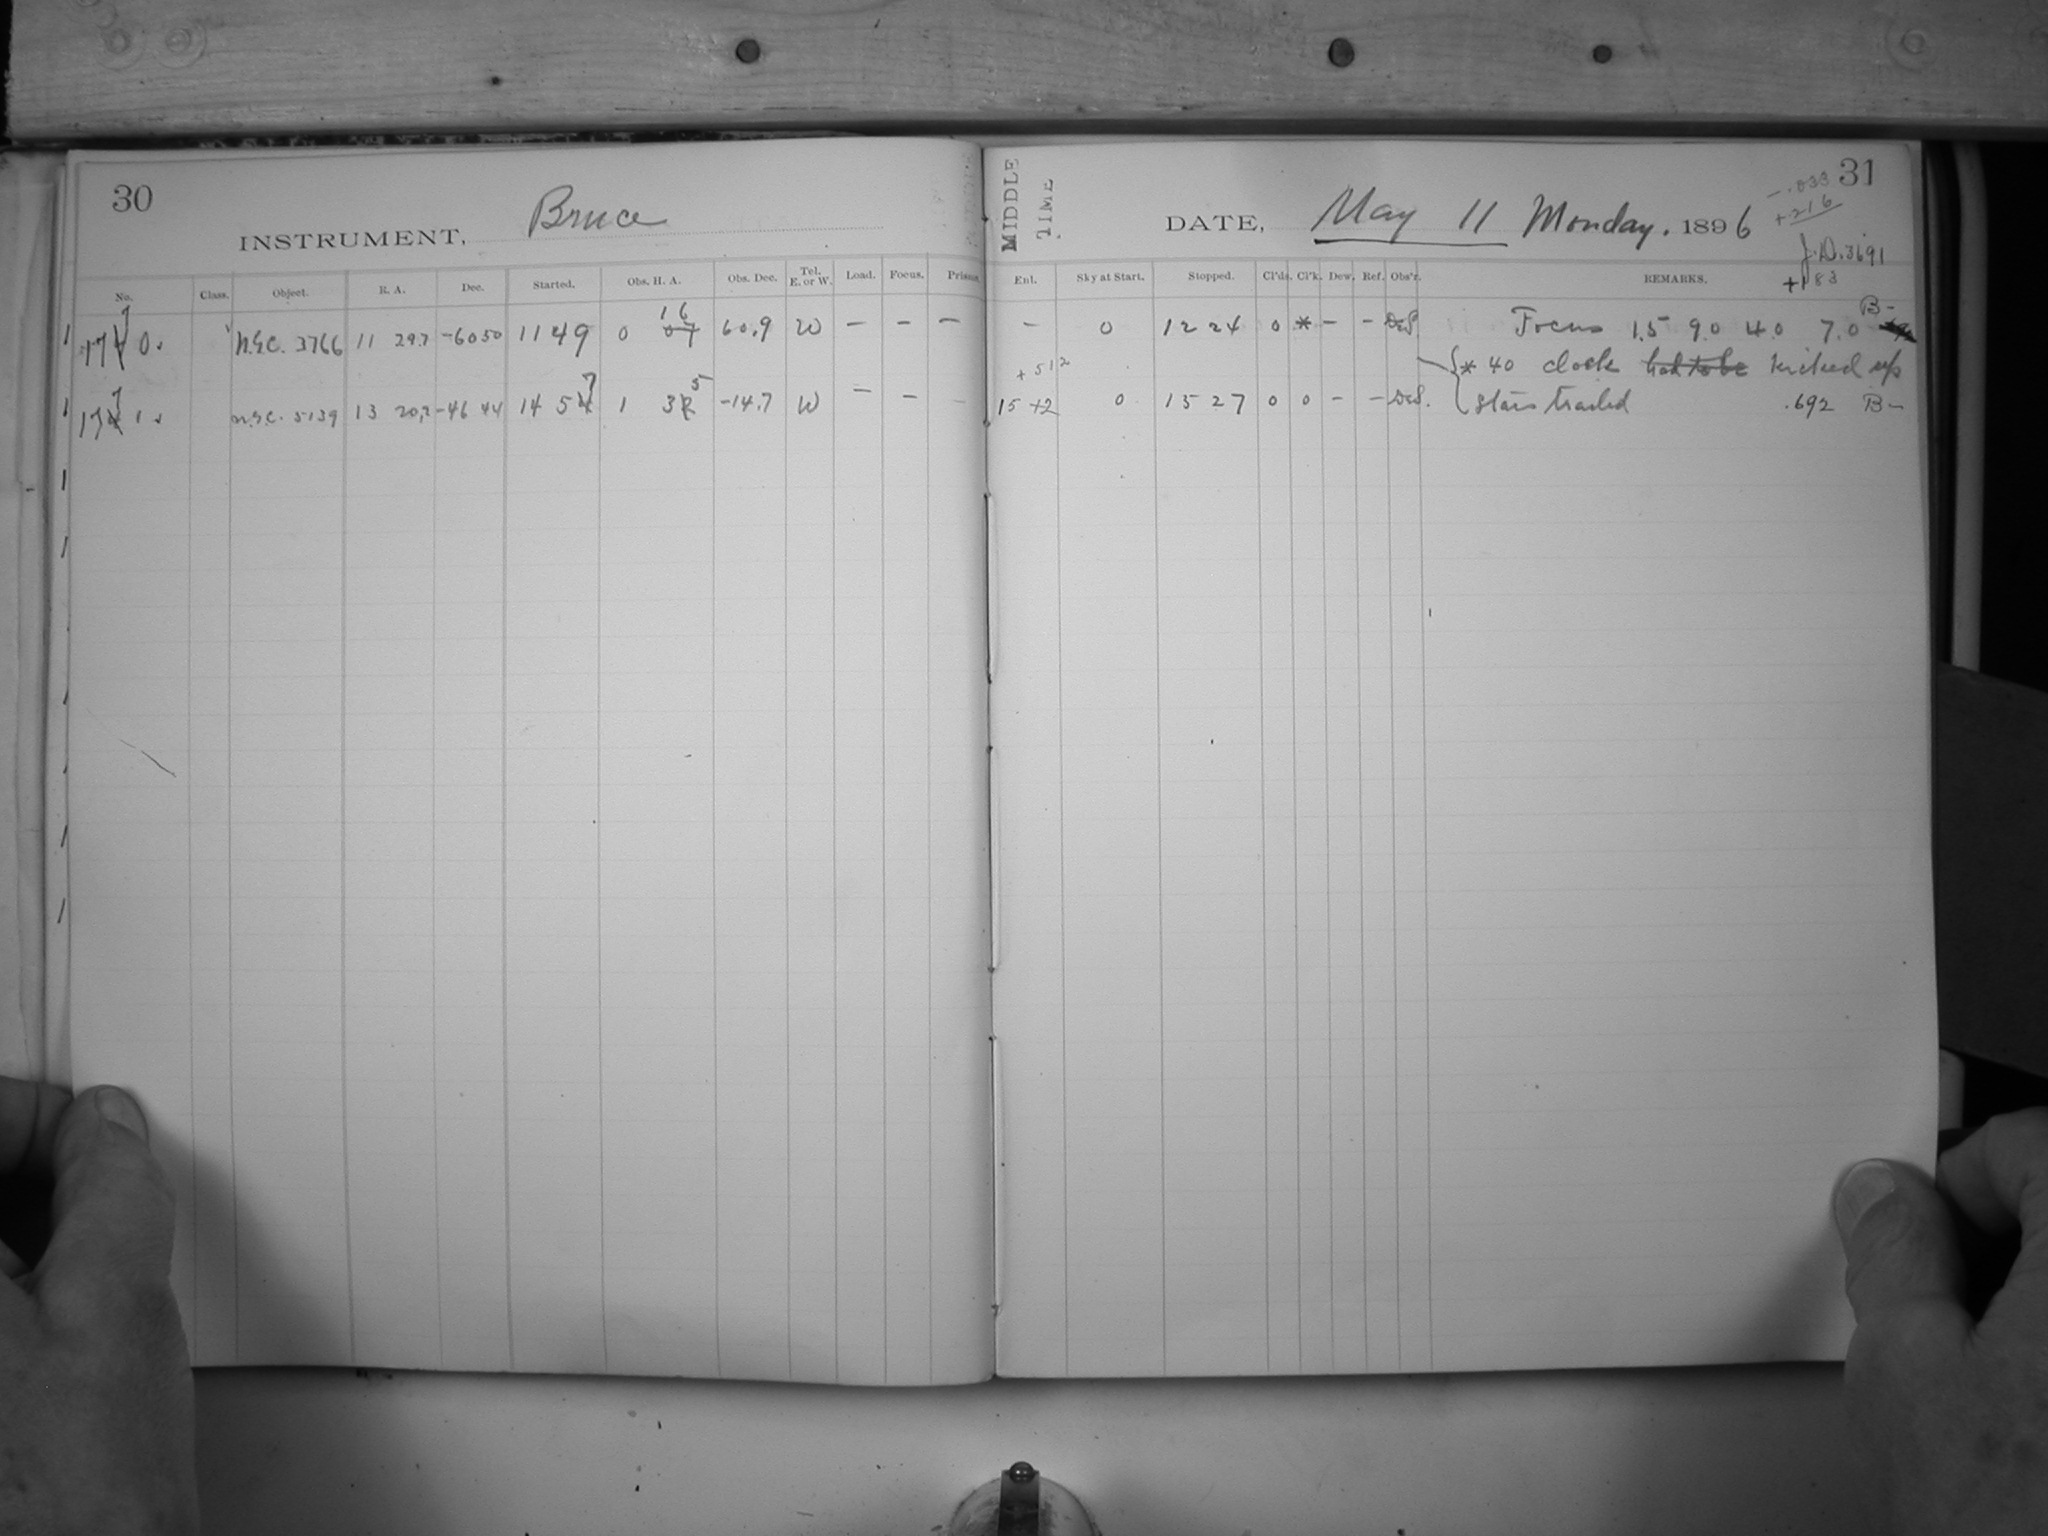 30
INSTRUMENT, Bruce
No. Class. Object. R. A. Dec. Started. Obs. H. A. Obs. Dec. Tel. E. or W. Load. Focus. Prisms
N.G.C. 3766 11 29.7 -60 50 11 49 0 07 16 60.9 W — – —
N.G.C. 5139 13 20.2 -46 44 14 57 1 35 -14.7 W — – –
MIDDLE TIME
31
DATE, May 11 Monday. 1896
-.033
+216
J.D. 3691
+183
Ent. Sky at Start. Stopped. Cl'ds. Cl'k. Dew. Ref. Obs'r. REMARKS.
– 0 12 24 0 * – – Focus 1.5 9.0 4.0 7.0 B–
+512
* 40 clock had to be kicked up
15 +2 0 15 27 0 0 – – stars trailed .692 B–